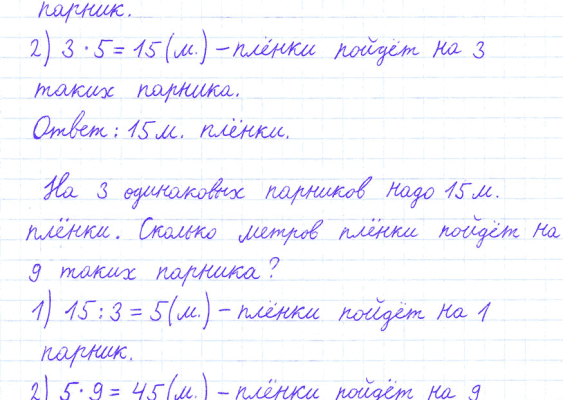 парник.
2) 3 · 5 = 15 (м.) – плёнки пойдёт на 3
таких парника.
Ответ: 15 м. плёнки.
На 3 одинаковых парников надо 15 м.
плёнки. Сколько метров плёнки пойдёт на
9 таких парника?
1) 15 : 3 = 5 (м.) – плёнки пойдёт на 1
парник.
2) 5 · 9 = 45 (м.) – плёнки пойдёт на 9